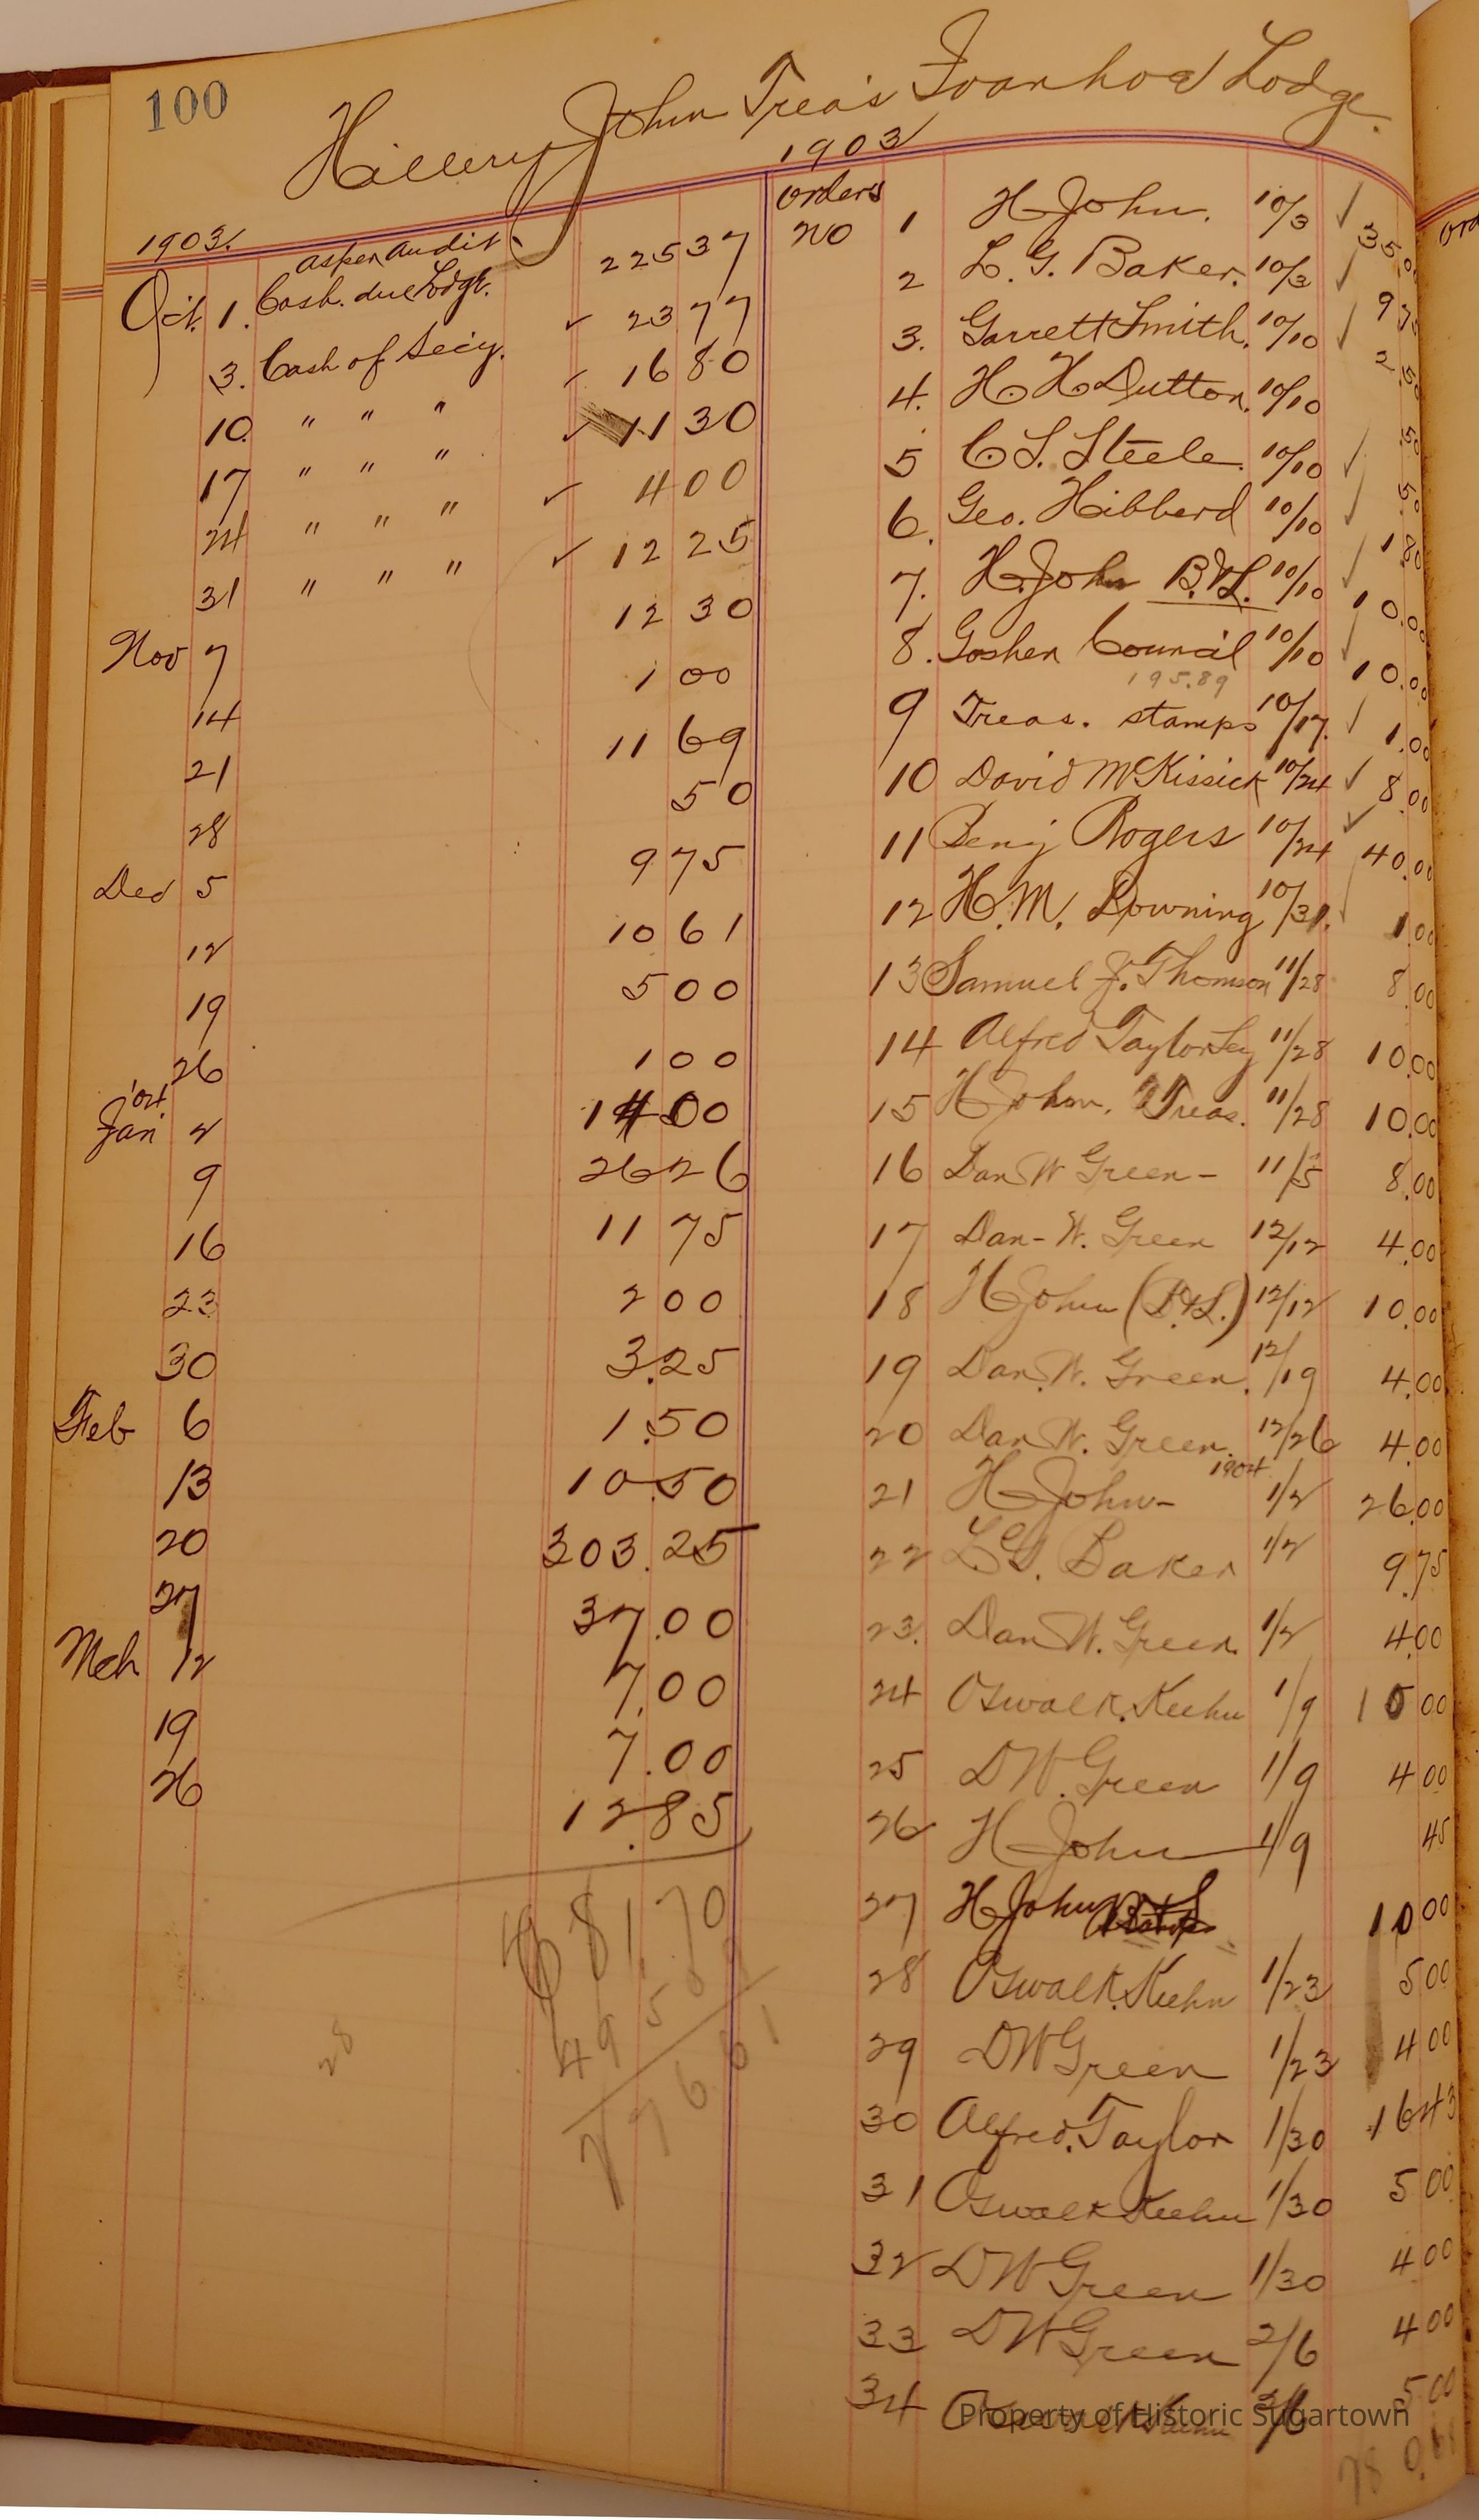 100
Hillery John Treas Ivanhoe Lodge.
1903.
as per audit
Oct. 1. Cash due Lodge. 225 37
3. Cash of Secy. ✓ 23 77
10. " " " ✓ 16 80
17 " " " ✓ 11 30
24 " " " ✓ 4 00
31 " " " ✓ 12 25
Nov 7 12 30
14 1 00
21 11 69
28 50
Dec 5 9 75
12 10 61
19 5 00
26 1 00
'04
Jan 2 14 00
9 26 26
16 11 75
23 2 00
30 3.25
Feb 6 1.50
13 10.50
20 303.25
27 37.00
Mch 12 7.00
19 7.00
26 12.85
28
1903
orders
No 1 H John. 10/3 ✓ 35.00
2 L. G. Baker. 10/3 ✓ 9 75
3. Garrett Smith. 10/10 ✓ 2.50
4. H. H Dutton. 10/10 .50
5 C S. Steele. 10/10 ✓ 50
6. Geo. Hibberd 10/10 ✓ 1 80
7. H. John B.&L. 10/10 ✓ 10.00
8. Goshen Council 10/10 ✓ 10.00
195.89
9 Treas. stamps 10/17. ✓ 1.00
10 David McKissick 10/24 ✓ 8.00
11 Benj Rogers 10/24 ✓ 40.00
12 H. M. Downing 10/31. ✓ 1.00
13 Samuel J. Thomson 11/28 8.00
14 Alfred Taylor Sey 11/28 10.00
15 H John. Treas. 11/28 10.00
16 Dan W Green - 11/5 8.00
17 Dan - W. Green 12/12 4.00
18 H John (B.&L.) 12/12 10.00
19 Dan. W. Green. 12/19 4.00
20 Dan W. Green. 12/26 4.00
1904
21 H John - 1/2 26.00
22 L G. Baker 1/2 9.75
23. Dan W. Green. 1/2 4.00
24 Oswal K. Keehn 1/9 10 00
25 D W. Green 1/9 4 00
26 H John 1/9 45
27 H John 10 00
28 Oswal K. Keehn 1/23 5 00
29 D W Green 1/23 4 00
30 Alfred. Taylor 1/30 16 43
31 Oswal K Keehn 1/30 5 00
32 D W Green 1/30 4 00
33 D W Green 2/6 4 00
34 2/6 5 00
Property of Historic Sugartown